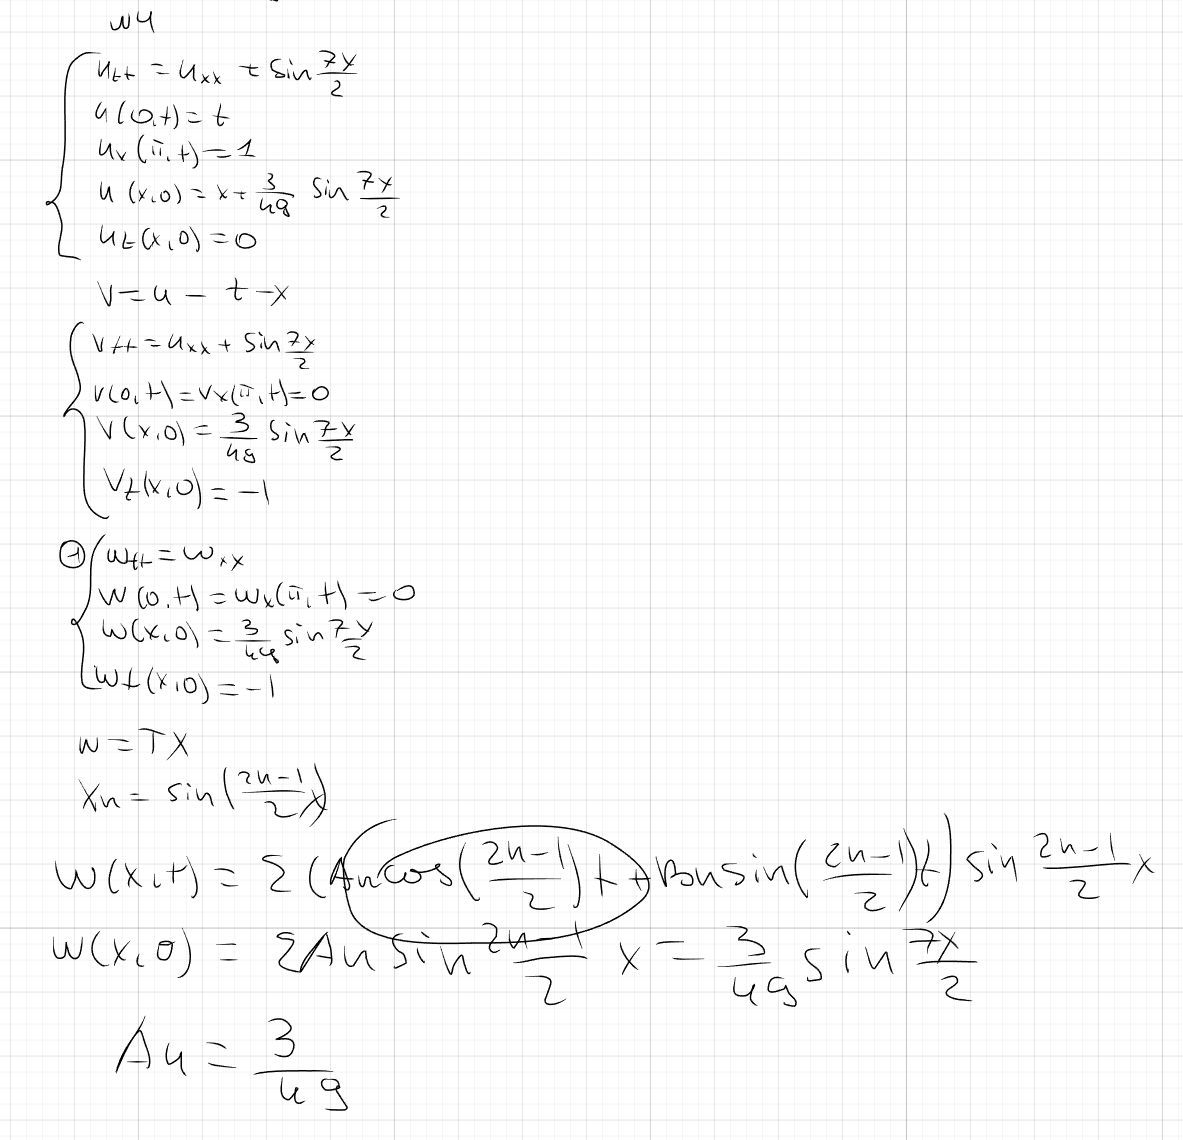 №4
u_tt = u_xx + sin 7x/2
u(0,t) = t
u_x(π,t) = 1
u(x,0) = x + 3/49 sin 7x/2
u_t(x,0) = 0
V = u - t - x
V_tt = u_xx + sin 7x/2
V(0,t) = V_x(π,t) = 0
V(x,0) = 3/49 sin 7x/2
V_t(x,0) = -1
① w_tt = w_xx
w(0,t) = w_x(π,t) = 0
w(x,0) = 3/49 sin 7x/2
w_t(x,0) = -1
w = TX
X_n = sin(2n-1/2 x)
w(x,t) = Σ(A_n cos(2n-1/2)t + B_n sin(2n-1/2)t) sin 2n-1/2 x
w(x,0) = ΣA_n sin 2n-1/2 x = 3/49 sin 7x/2
A_4 = 3/49